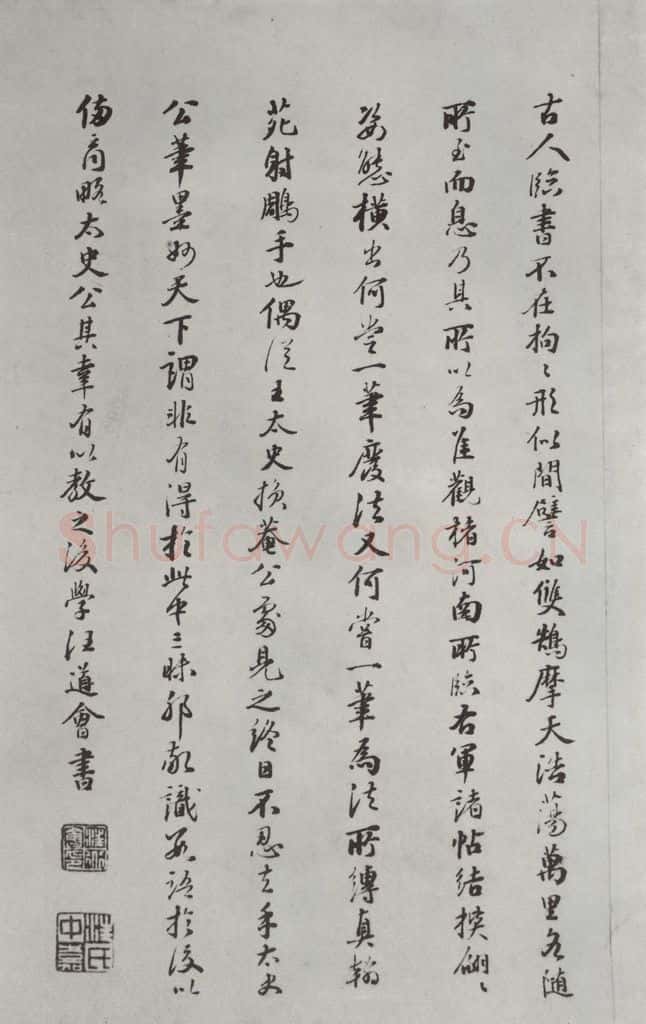 古人臨書不在拘〻形似間譬如雙鵠摩天浩蕩萬里各隨
所至而息乃其所以為佳觀褚河南所臨右軍諸帖結搆翩〻
姿態橫出何嘗一筆廢法又何嘗一筆為法所縛真翰
苑射鵰手也偶從王太史損菴公處見之終日不忍去手太史
公筆墨妙天下謂非有得於此中三昧邪敢識數語於後以
俻商略太史公其幸有以教之後學汪道會書
汪氏
中意
Shufawang.CN